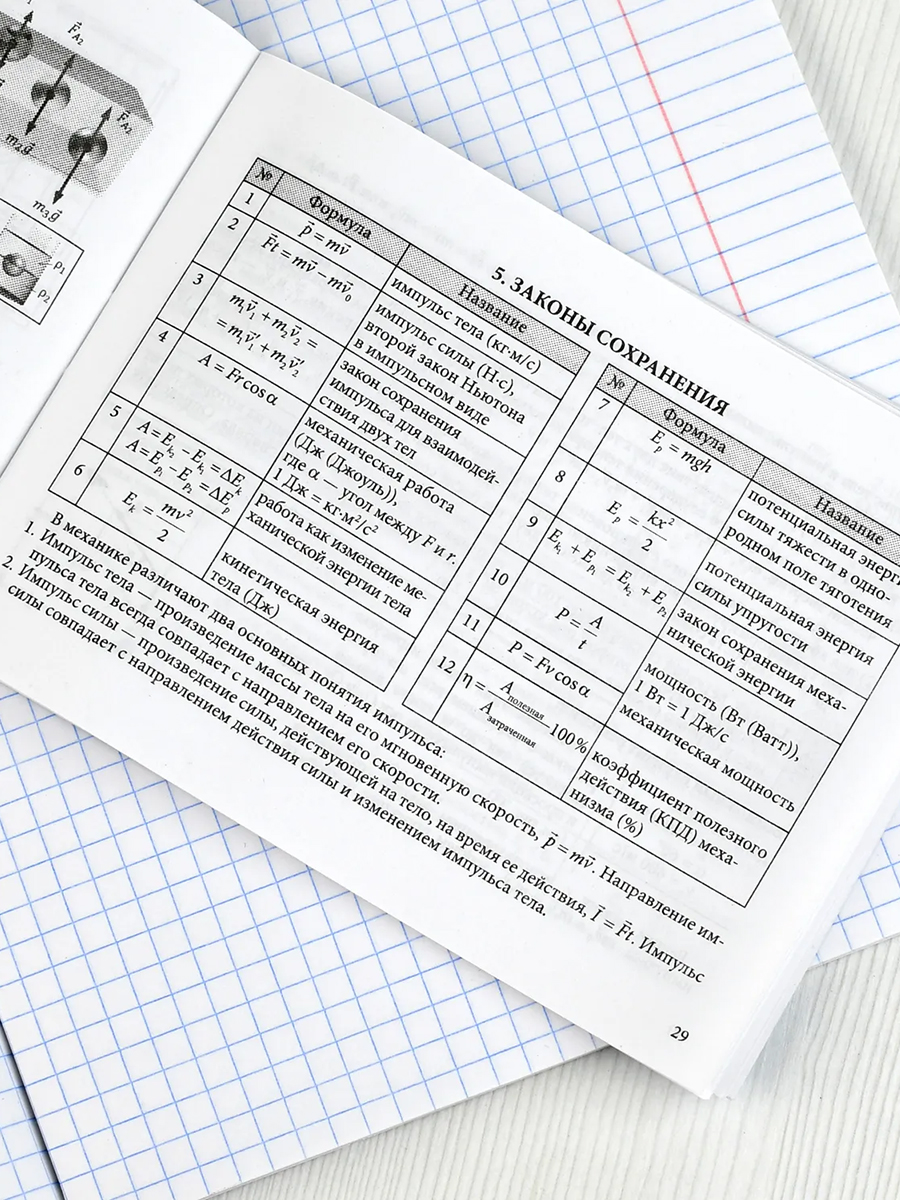 F⃗A₂
F⃗A₃
m₂g⃗
m₃g⃗
ρ₁
ρ₂
5. ЗАКОНЫ СОХРАНЕНИЯ
№ Формула Название
1 p⃗ = mv⃗ импульс тела (кг·м/с)
2 F⃗t = mv⃗ − mv⃗₀ импульс силы (Н·с),
второй закон Ньютона
в импульсном виде
3 m₁v⃗₁ + m₂v⃗₂ = закон сохранения
= m₁v⃗₁′ + m₂v⃗₂′ импульса для взаимодей-
ствия двух тел
4 A = Fr cos α механическая работа
(Дж (Джоуль)),
где α — угол между F и r.
1 Дж = кг·м²/с²
5 A = Eₖ₂ − Eₖ₁ = ΔEₖ работа как изменение ме-
A = Eₚ₁ − Eₚ₂ = ΔEₚ ханической энергии тела
6 Eₖ = mv²/2 кинетическая энергия
тела (Дж)
№ Формула Название
7 Eₚ = mgh потенциальная энерги
силы тяжести в одно-
родном поле тяготения
8 Eₚ = kx²/2 потенциальная энергия
силы упругости
9 Eₖ₁ + Eₚ₁ = Eₖ₂ + Eₚ₂ закон сохранения меха-
нической энергии
10 P = A/t мощность (Вт (Ватт)),
1 Вт = 1 Дж/с
11 P = Fv cos α механическая мощность
12 η = Aполезная/Aзатраченная 100% коэффициент полезного
действия (КПД) меха-
низма (%)
В механике различают два основных понятия импульса:
1. Импульс тела — произведение массы тела на его мгновенную скорость, p⃗ = mv⃗. Направление им-
пульса тела всегда совпадает с направлением его скорости.
2. Импульс силы — произведение силы, действующей на тело, на время ее действия, I⃗ = F⃗t. Импульс
силы совпадает с направлением действия силы и изменением импульса тела.
29